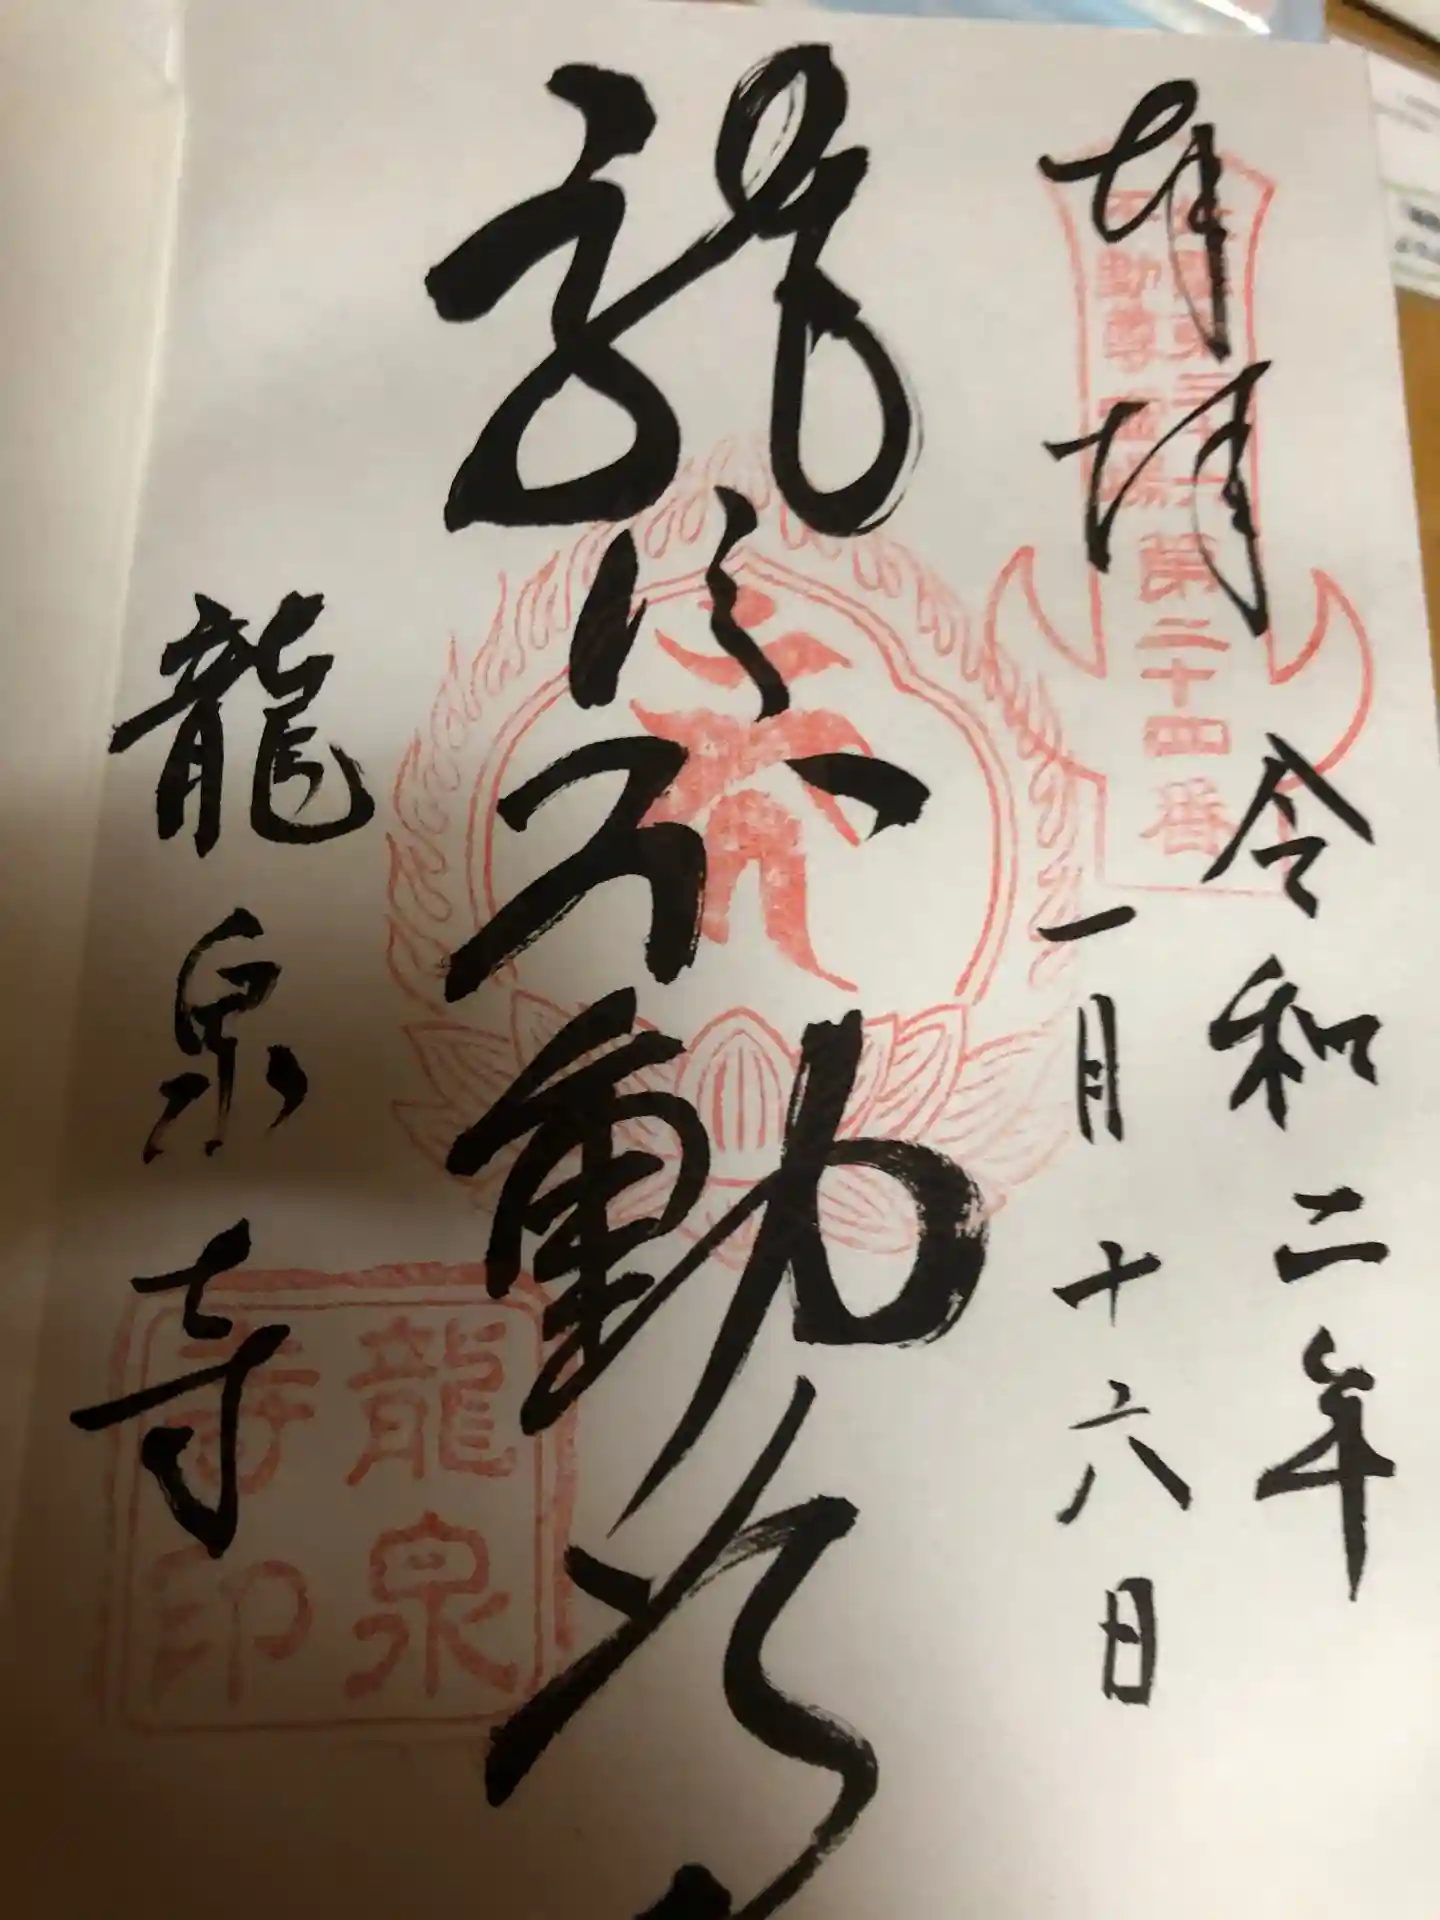 奉拝
北関東三十六
不動尊霊場
第二十四番
令和二年
一月十六日
不動
龍泉寺
龍泉
寺印